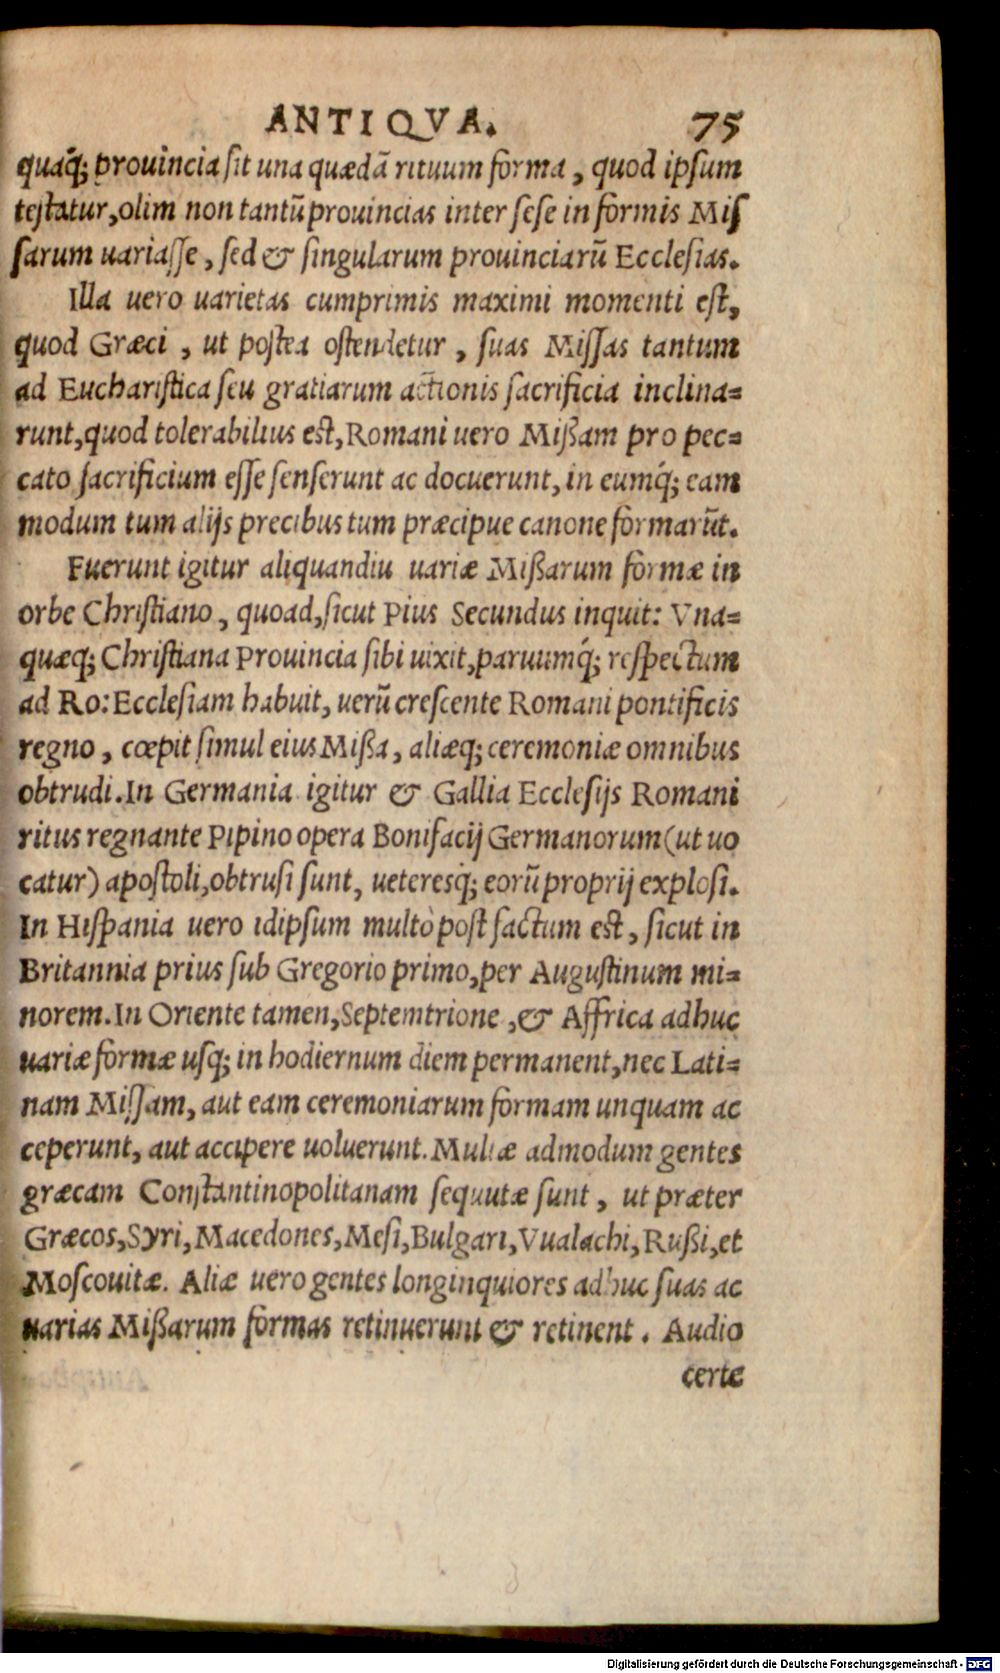 ANTIQVA. 75
quaq́; prouincia sit una quædā rituum forma, quod ipsum
testatur, olim non tantū prouincias inter sese in formis Mis
sarum uariasse, sed & singularum prouinciarū Ecclesias.
Illa uero uarietas cumprimis maximi momenti est,
quod Græci, ut postea ostendetur, suas Missas tantum
ad Eucharistica seu gratiarum actionis sacrificia inclina=
runt, quod tolerabilius est, Romani uero Mißam pro pec=
cato sacrificium esse senserunt ac docuerunt, in eumq́; eam
modum tum alijs precibus tum præcipue canone formarūt.
Fuerunt igitur aliquandiu uariæ Mißarum formæ in
orbe Christiano, quoad, sicut Pius Secundus inquit: Vna=
quæq; Christiana Prouincia sibi uixit, paruumq́; respectum
ad Ro: Ecclesiam habuit, uerū crescente Romani pontificis
regno, cœpit simul eius Mißa, aliæq; ceremoniæ omnibus
obtrudi. In Germania igitur & Gallia Ecclesijs Romani
ritus regnante Pipino opera Bonifacij Germanorum (ut uo
catur) apostoli, obtrusi sunt, ueteresq́; eorū proprij explosi.
In Hispania uero idipsum multò post factum est, sicut in
Britannia prius sub Gregorio primo, per Augustinum mi=
norem. In Oriente tamen, Septemtrione, & Affrica adhuc
uariæ formæ usq; in hodiernum diem permanent, nec Lati=
nam Missam, aut eam ceremoniarum formam unquam ac
ceperunt, aut accipere uoluerunt. Multæ admodum gentes
græcam Constantinopolitanam sequutæ sunt, ut præter
Græcos, Syri, Macedones, Mesi, Bulgari, Vualachi, Rußi, et
Moscouitæ. Aliæ uero gentes longinquiores adhuc suas ac
uarias Mißarum formas retinuerunt & retinent. Audio
certe
Digitalisierung gefördert durch die Deutsche Forschungsgemeinschaft - DFG